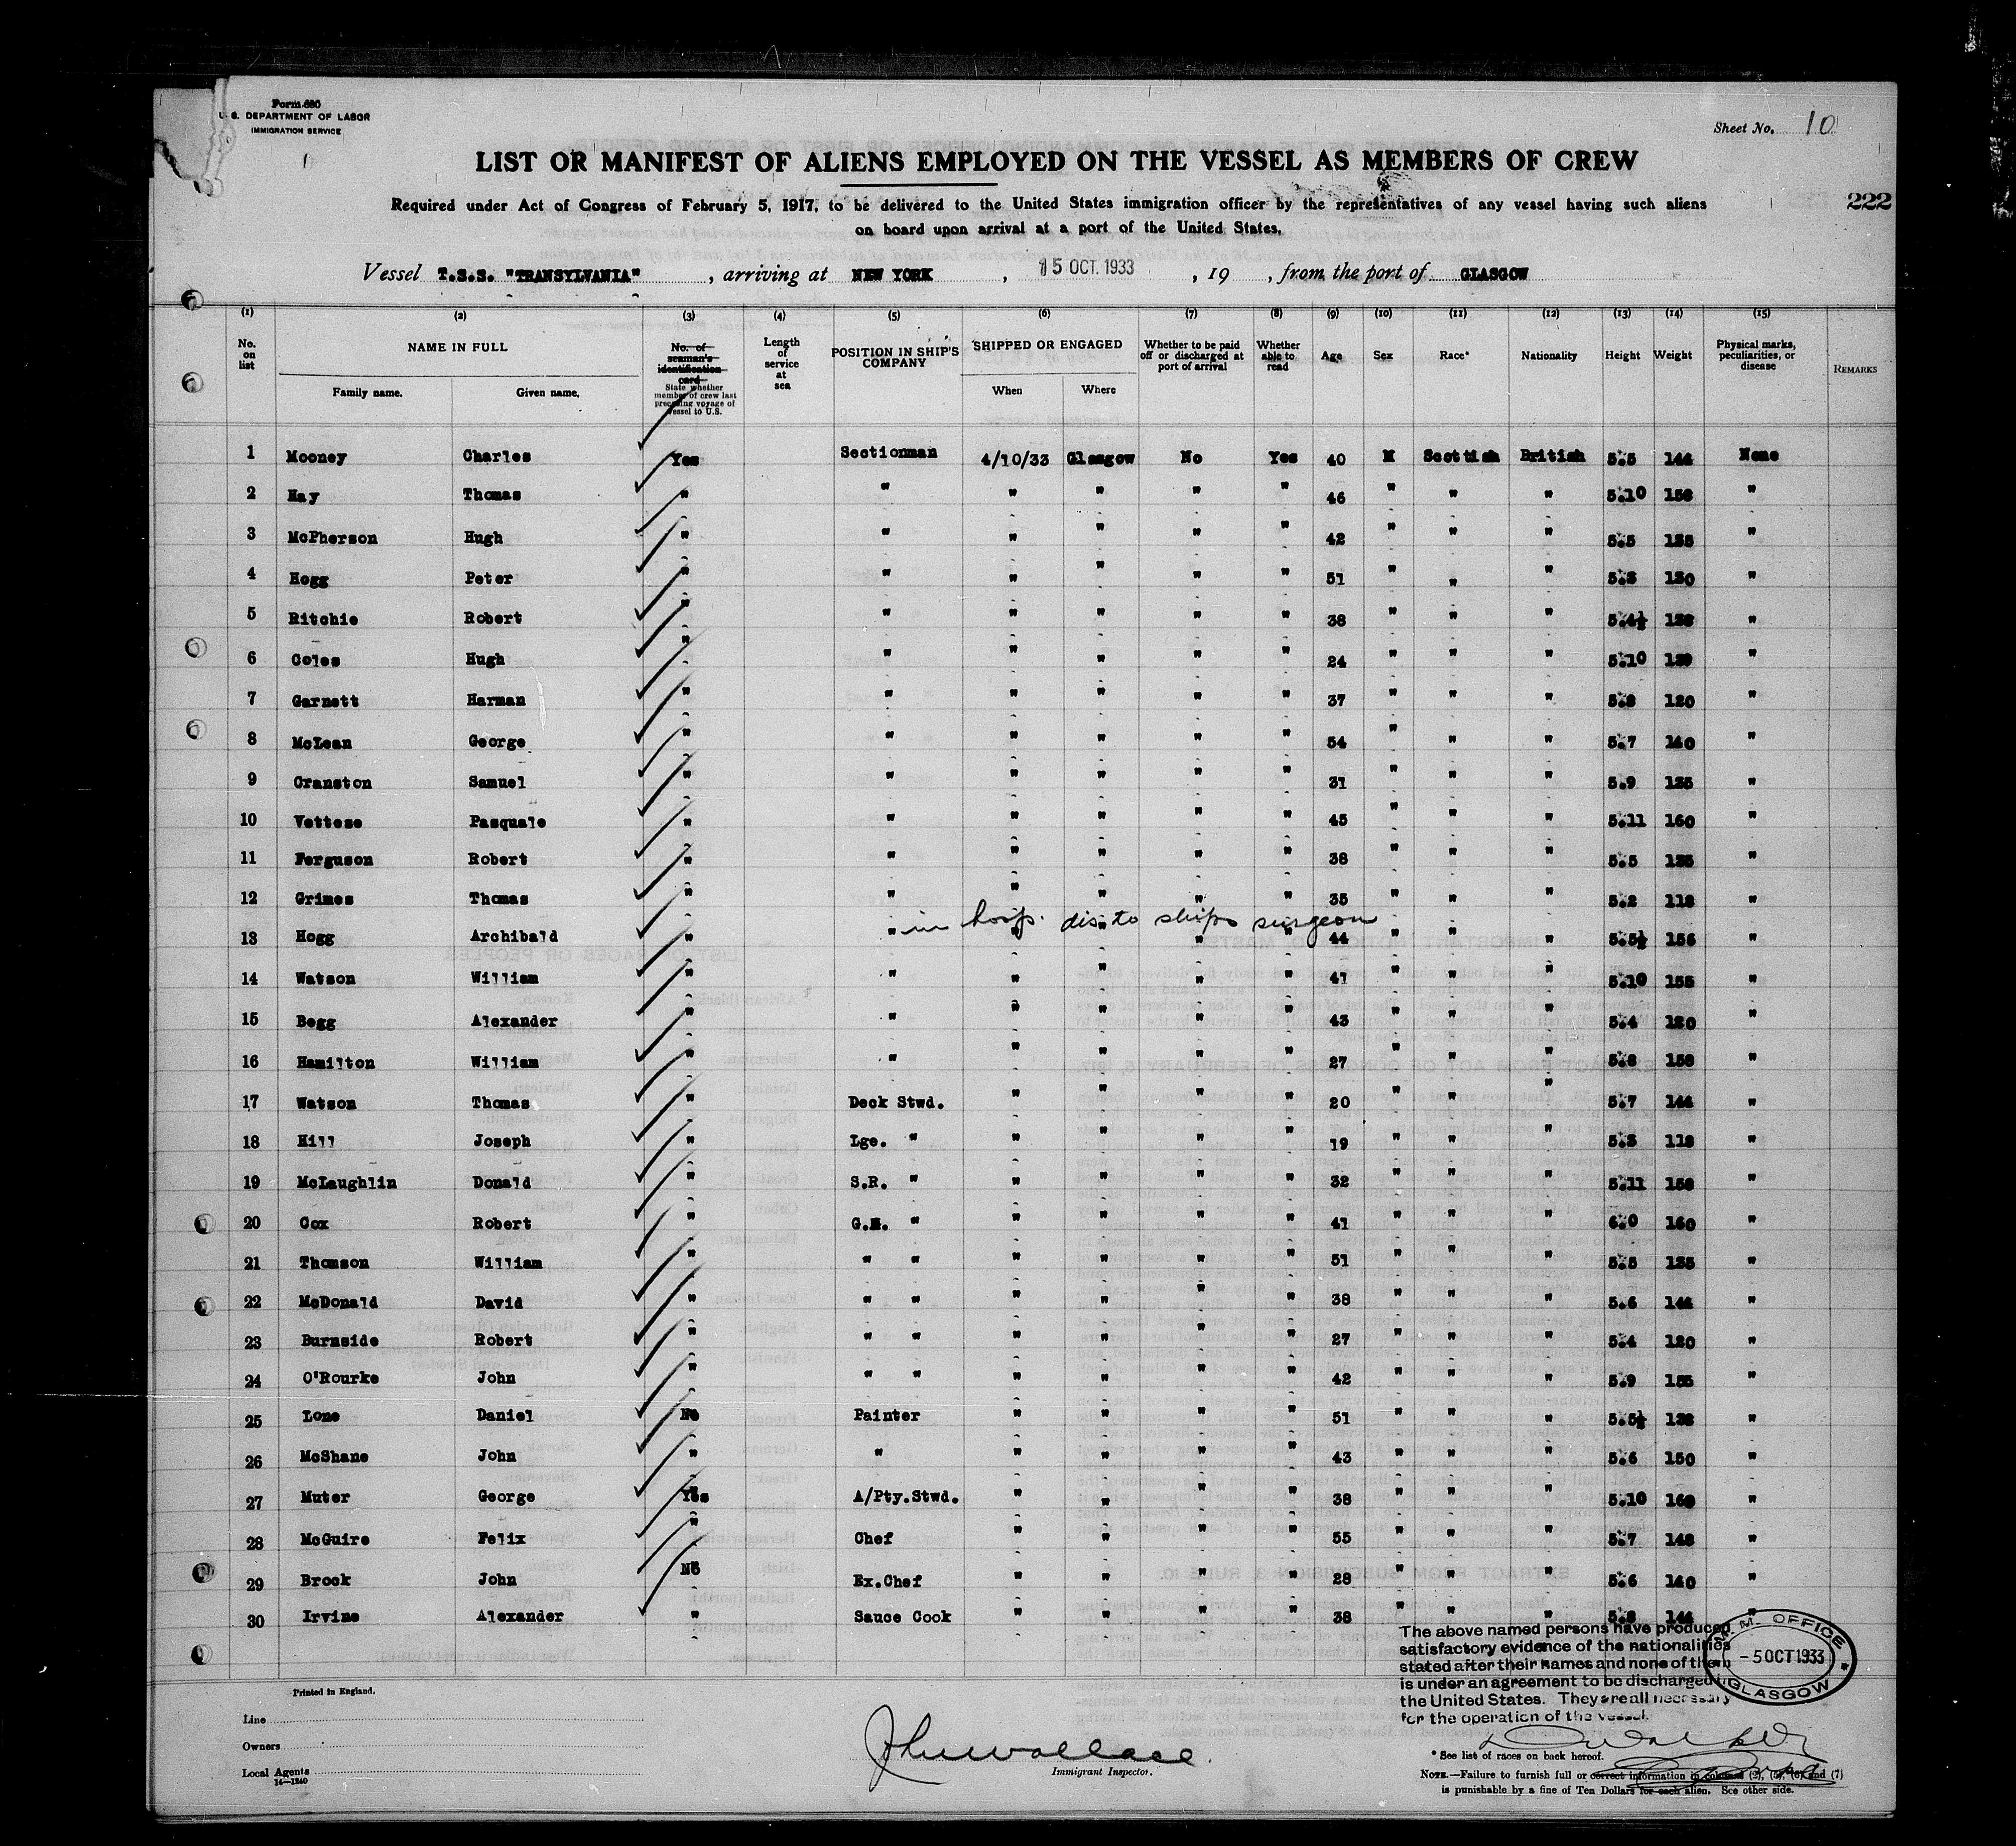 Form 680
U. S. DEPARTMENT OF LABOR
IMMIGRATION SERVICE
Sheet No. 10
LIST OR MANIFEST OF ALIENS EMPLOYED ON THE VESSEL AS MEMBERS OF CREW
222
Required under Act of Congress of February 5, 1917, to be delivered to the United States immigration officer by the representatives of any vessel having such aliens
on board upon arrival at a port of the United States,
Vessel T.S.S. "TRANSYLVANIA" , arriving at NEW YORK , 15 OCT. 1933 , 19 , from the port of GLASGOW
(1) (2) (3) (4) (5) (6) (7) (8) (9) (10) (11) (12) (13) (14) (15)
No. on list NAME IN FULL Family name. Given name. No. of seaman's identification card State whether member of crew last preceding voyage of vessel to U.S. Length of service at sea POSITION IN SHIP'S COMPANY SHIPPED OR ENGAGED When Where Whether to be paid off or discharged at port of arrival Whether able to read Age Sex Race* Nationality Height Weight Physical marks, peculiarities, or disease REMARKS
1 Mooney Charles Yes Sectionman 4/10/33 Glasgow No Yes 40 M Scottish British 5.5 144 None
2 Hay Thomas " " " " " " 46 " " " 5.10 158 "
3 McPherson Hugh " " " " " " 42 " " " 5.5 135 "
4 Hogg Peter " " " " " " 51 " " " 5.3 130 "
5 Ritchie Robert " " " " " " 38 " " " 5.4½ 138 "
6 Coles Hugh " " " " " " 24 " " " 5.10 139 "
7 Garnett Harman " " " " " " 37 " " " 5.8 120 "
8 McLean George " " " " " " 54 " " " 5.7 140 "
9 Cranston Samuel " " " " " " 31 " " " 5.9 135 "
10 Vettese Pasquale " " " " " " 45 " " " 5.11 160 "
11 Ferguson Robert " " " " " " 38 " " " 5.5 135 "
12 Grimes Thomas " " " " " " 35 " " " 5.2 118 "
in hosp. dis to ships surgeon
13 Hogg Archibald " " " " " " 44 " " " 5.5½ 156 "
14 Watson William " " " " " " 41 " " " 5.10 155 "
15 Begg Alexander " " " " " " 43 " " " 5.4 120 "
16 Hamilton William " " " " " " 27 " " " 5.8 158 "
17 Watson Thomas " Deck Stwd. " " " " 20 " " " 5.7 144 "
18 Hill Joseph " Lge. " " " " " 19 " " " 5.3 118 "
19 McLaughlin Donald " S.R. " " " " " 32 " " " 5.11 158 "
20 Cox Robert " G.H. " " " " " 41 " " " 6.0 160 "
21 Thomson William " " " " " " " 51 " " " 5.5 135 "
22 McDonald David " " " " " " " 38 " " " 5.6 144 "
23 Burnside Robert " " " " " " " 27 " " " 5.4 120 "
24 O'Rourke John " " " " " " " 42 " " " 5.9 155 "
25 Lone Daniel No Painter " " " " 51 " " " 5.5½ 138 "
26 McShane John " " " " " " 43 " " " 5.6 150 "
27 Muter George Yes A/Pty.Stwd. " " " " 38 " " " 5.10 160 "
28 McGuire Felix " Chef " " " " 55 " " " 5.7 148 "
29 Brock John No Ex.Chef " " " " 28 " " " 5.6 140 "
30 Irvine Alexander " Sauce Cook " " " " 38 " " " 5.8 144 "
The above named persons have produced
satisfactory evidence of the nationalities
stated after their names and none of them
is under an agreement to be discharged in
the United States. They are all necessary
for the operation of the vessel.
M.M. OFFICE
-5 OCT 1933
GLASGOW
Printed in England.
Line
Owners
Local Agents
14—1240
Jhu wallace
Immigrant Inspector.
* See list of races on back hereof.
NOTE.—Failure to furnish full or correct information in columns (2), (5), (6) and (7)
is punishable by a fine of Ten Dollars for each alien. See other side.